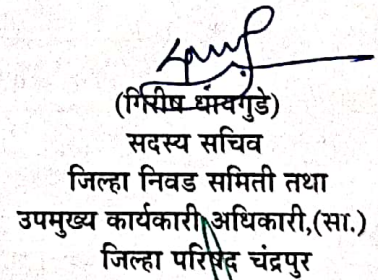 (गिरीष धायगुडे)
सदस्य सचिव
जिल्हा निवड समिती तथा
उपमुख्य कार्यकारी अधिकारी,(सा.)
जिल्हा परिषद चंद्रपुर